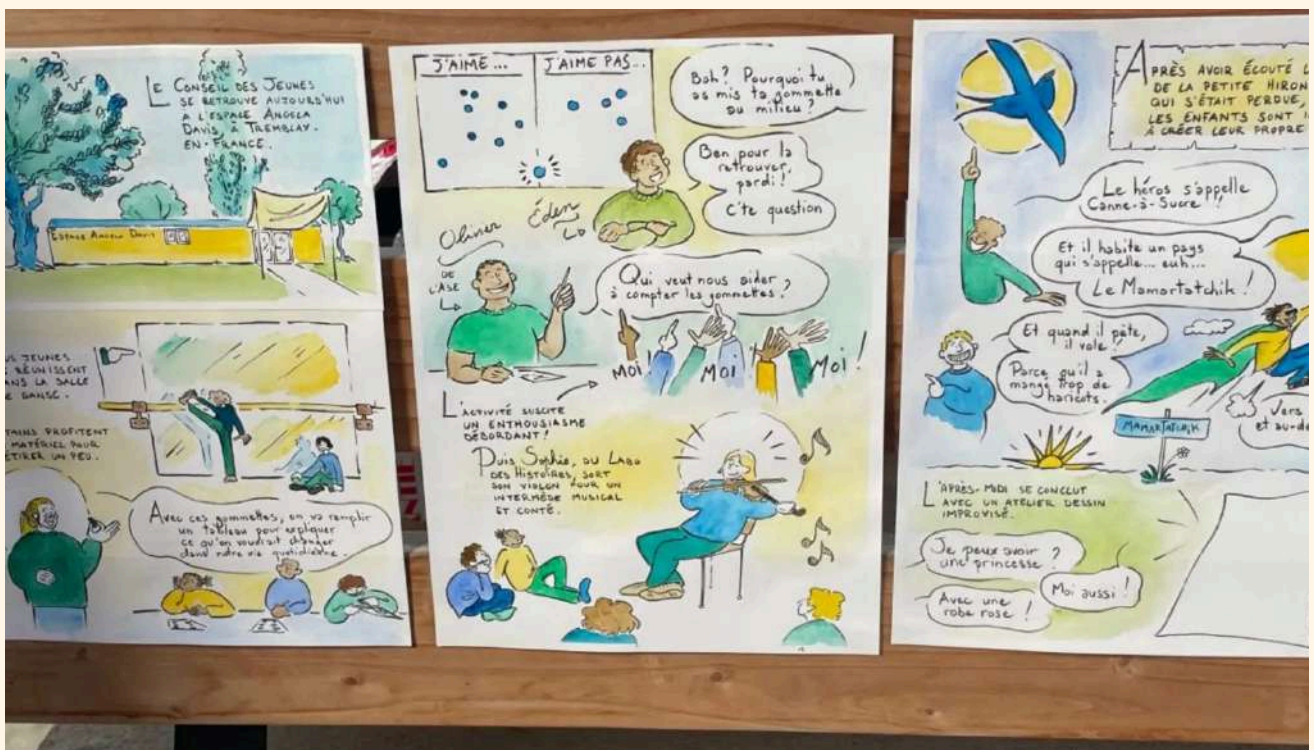 LE CONSEIL DES JEUNES
SE RETROUVE AUJOURD'HUI
A L'ESPACE ANGELA
DAVIS, À TREMBLAY-
EN-FRANCE.
ESPACE ANGELA DAVIS
JEUNES
RÉUNISSENT
LA SALLE
DANSE.
PROFITENT
MATÉRIEL POUR
UN PEU.
Avec ces gommettes, on va remplir
un tableau pour expliquer
ce qu'on voudrait changer
dans notre vie quotidienne.
J'AIME...
J'AIME PAS...
Bah? Pourquoi tu
as mis ta gommette
au milieu?
Ben pour la
retrouver,
pardi!
C'te question
Éden
Olivier
DE
L'ASE
Qui veut nous aider
à compter les gommettes?
MOI!
MOI!
MOI!
L'ACTIVITÉ SUSCITE
UN ENTHOUSIASME
DÉBORDANT!
Puis Sophie, DU LABO
DES HISTOIRES, SORT
SON VIOLON POUR UN
INTERMÈDE MUSICAL
ET CONTÉ.
APRÈS AVOIR ÉCOUTÉ
DE LA PETITE
QUI S'ÉTAIT PERDUE,
LES ENFANTS SONT
À CRÉER LEUR PROPRE
Le héros s'appelle
Canne-à-Sucre!
Et il habite un pays
qui s'appelle... euh...
Le Mamartatchik!
Et quand il pète,
il vole!
Parce qu'il a
mangé trop de
haricots.
MAMARTATCHIK
Vers
et
L'APRÈS-MIDI SE CONCLUT
AVEC UN ATELIER DESSIN
IMPROVISÉ.
Je peux avoir
une princesse?
Moi aussi!
Avec une
robe rose!